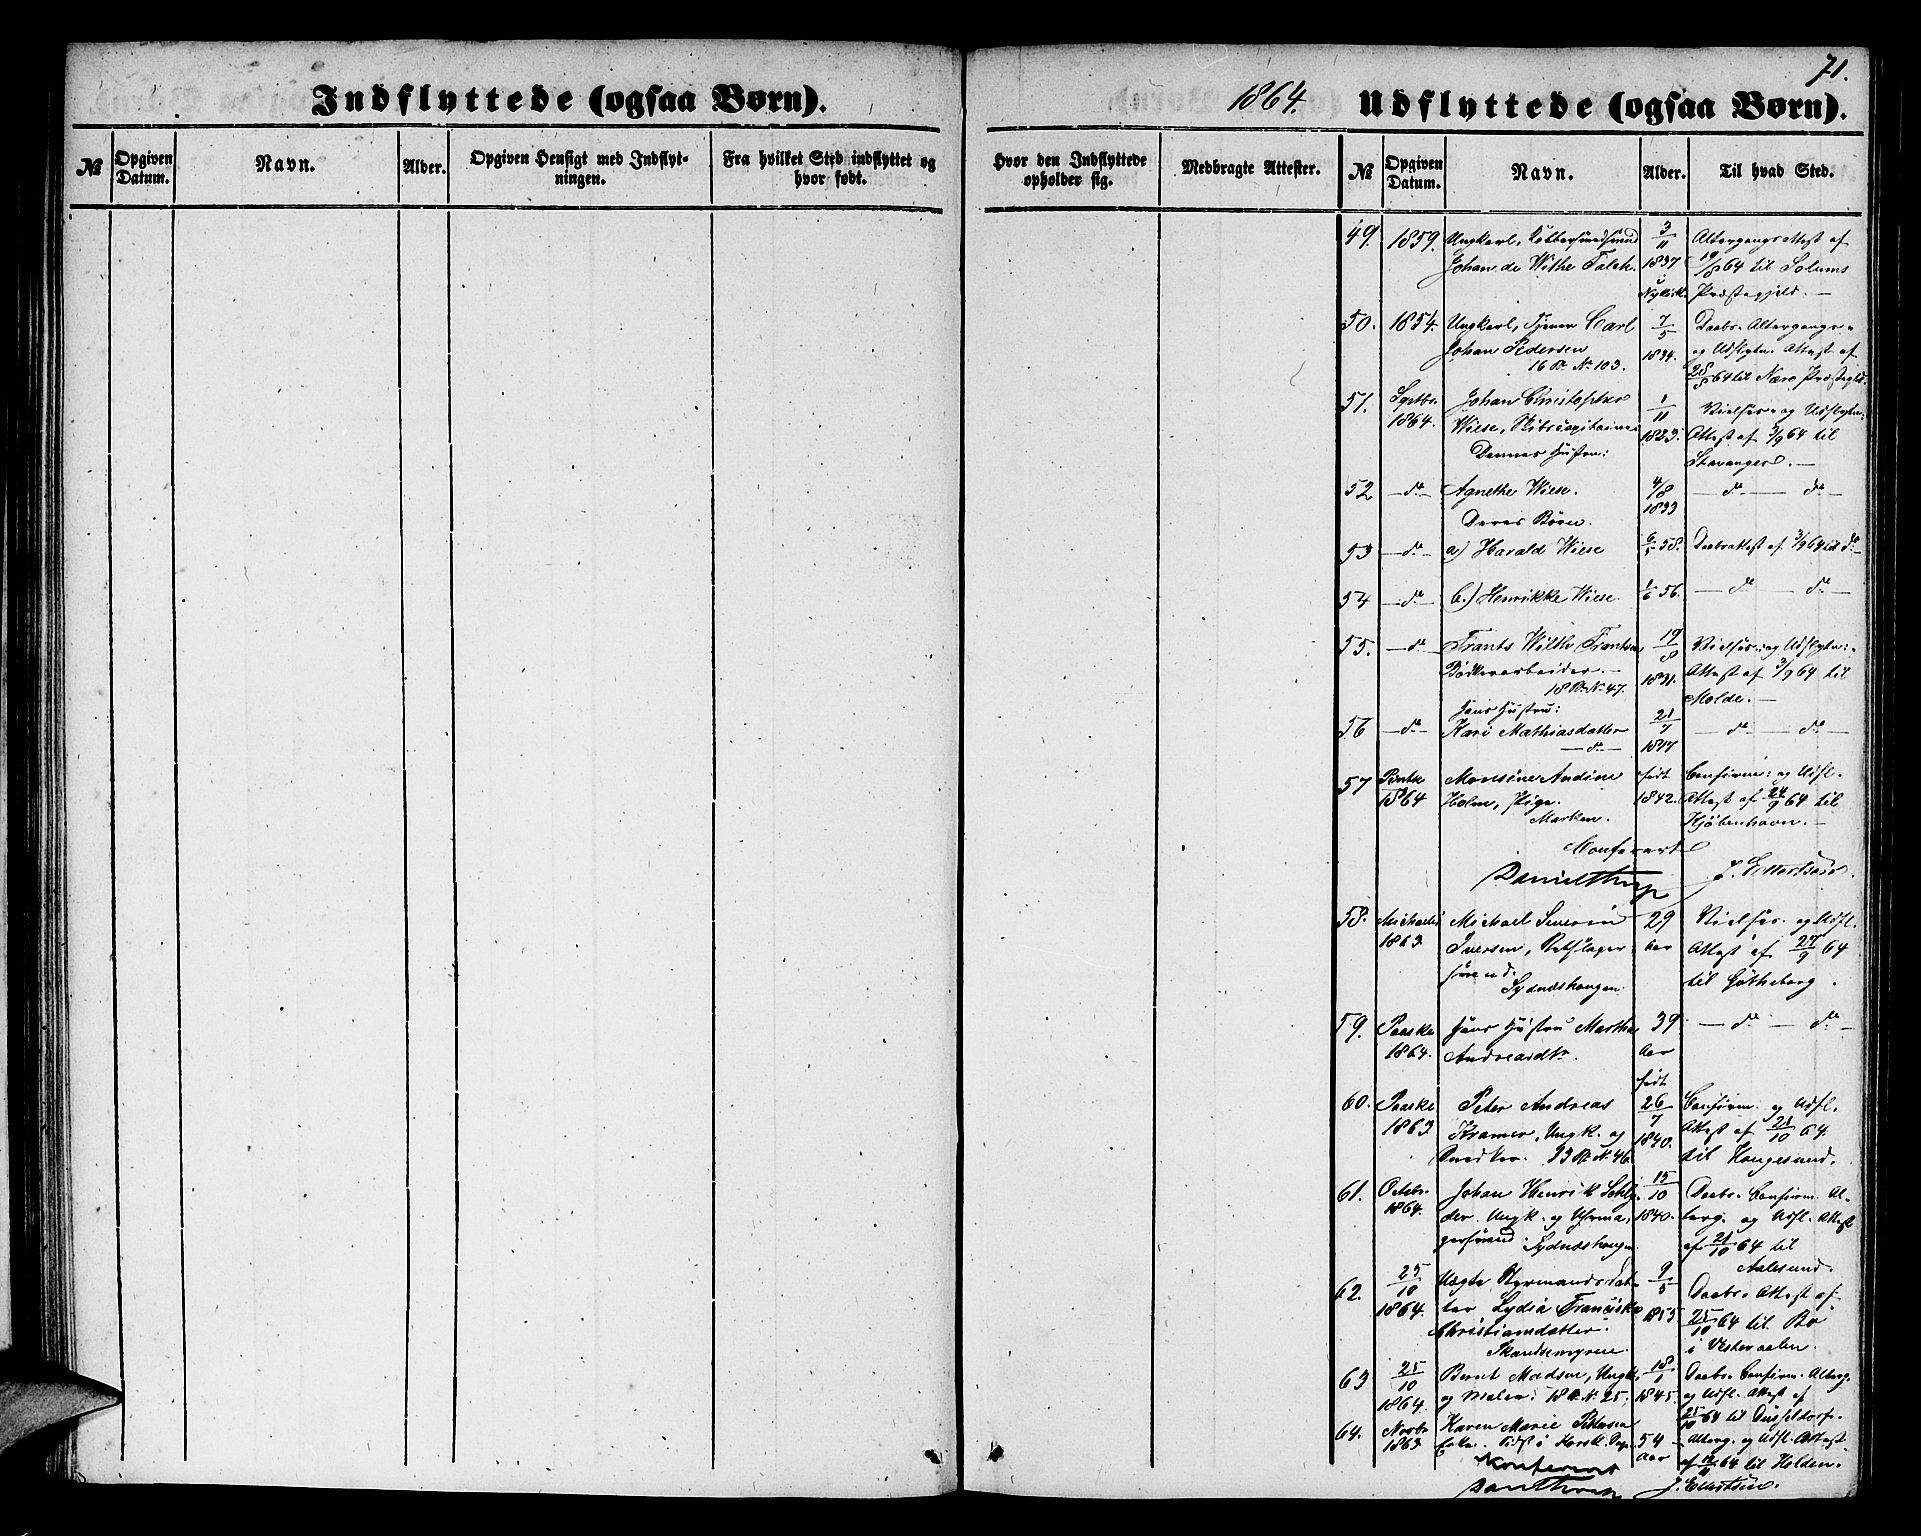 71.
Indflyttede (ogsaa Børn).
1864. Udflyttede (ogsaa Børn).
№ Opgiven Datum. Navn. Alder. Opgiven Hensigt med Indflyt-
ningen. Fra hvilket Sted indflyttet og
hvor født.
Hvor den Indflyttede
opholder sig. Medbragte Attester. № Opgiven Datum. Navn. Alder. Til hvad Sted.
49. 1859. Ungkarl, Kobbersmedsvend 3/11 Altergangs Attest af
Johan de Withe Falch. 1837 19/8 64 til Solums
i Præstegjeld. —
50. 1854. Ungkarl, Tjener Carl 7/5 Daabs- Altergangs-
Johan Pedersen 1834. og Udflytn. Attest af
16 R. No 103. 28/8 64 til Næro Præstegld.
51. Septbr. Johan Christopher 1/11 Vielses- og Udflytn:
1864. Wiese, Skibscapitaine 1823. Attest af 3/9 64 til
Dennes Hustru: Stavanger. —
52 — do — Agnethe Wiese. 4/8 — do — do —
Deres Børn. 1833
53 — do — a) Harald Wiese 6/5 58. Daabsattest af 3/9 64 til do —
54 — do — b.) Henrikke Wiese. 1/6 56. — do — do
55. — do — Frants Wilh. Frantsen, 19/8 Vielses- og Udflytn:
Bødkerarbeider. — 1831. Attest af 3/9 64 til
18 R. No 47. Molde. —
Hans Hustru: 21/7
56 — do — Kari Mathiasdatter — do — do —
— do — 1817
57 1864 Monsine Andine født Confirm: og Udfl.
Holm, Pige. 1842. Attest af 24/9 64 til
Marken. Kjøbenhavn. —
Confererert
Daniel Thrap J. Ellertsen.
58. Michaeli Michael Severin 29 Vielses- og Udfl.
1863 Iversen, Rebslager- aar Attest af 27/9 64
svend. til Gøtheborg.
Sydnæshaugen
59. Paaske Hans Hustru Martha 39 — do — do —
1864. Andreasdtr. aar
født
60. Paaske Peter Andreas 26/7 Confirm. og Udfl.
1863 Kramer, Ungk. og 1840. Attest af 21/10 64.
Snedker. 23 R. No 46. til Haugesund.
61. Octobr. Johan Henrik 15/10 Daabs- Confirm. Al-
1864. Ungk. og Uhrma- 1840. terg. og Udfl. Attest
gersvend. Sydnæshaugen af 21/10 64 til
Aalesund.
62. 25/10 Uægte Styrmandsdat- 9/5 Daabs- Attest af
1864. ter Lydia Franciska 1855 25/10 64 til Bø
Christiansdatter. i Vesteraalen.
Skandsemyren
63 25/10 Bernt Madsen, Ungk. 18/1 Daabs- Confirm. Alterg.
1864. og Maler. 18 R. No 25. 1845. og Udfl. Attest af
25/10 64 til Düsseldorf.
64. Novbr. Karen Marie Pettersen 54 Alterg. og Udfl. Attest
1863 Enke. Tidst i Korsk. Sogn aar af 64 til Holden.
Konfereret
Dan Thrap J. Ellertsen.